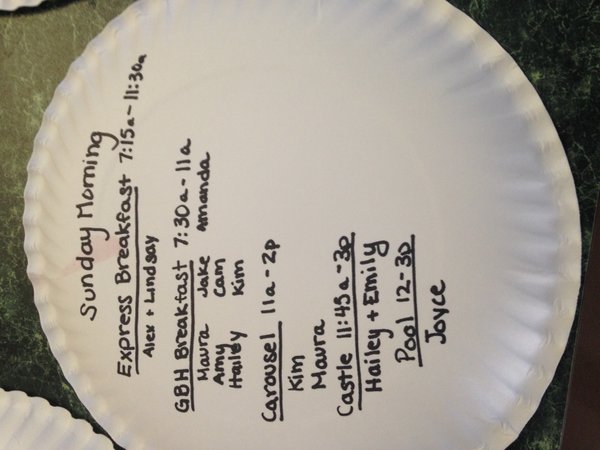 Sunday Morning
Express Breakfast 7:15a-11:30a
Alex + Lindsay
GBH Breakfast 7:30a-11a
Maura Jake Amanda
Amy Cam
Hailey Kim
Carousel 11a-2p
Kim
Maura
Castle 11:45a-3p
Hailey + Emily
Pool 12-3p
Joyce